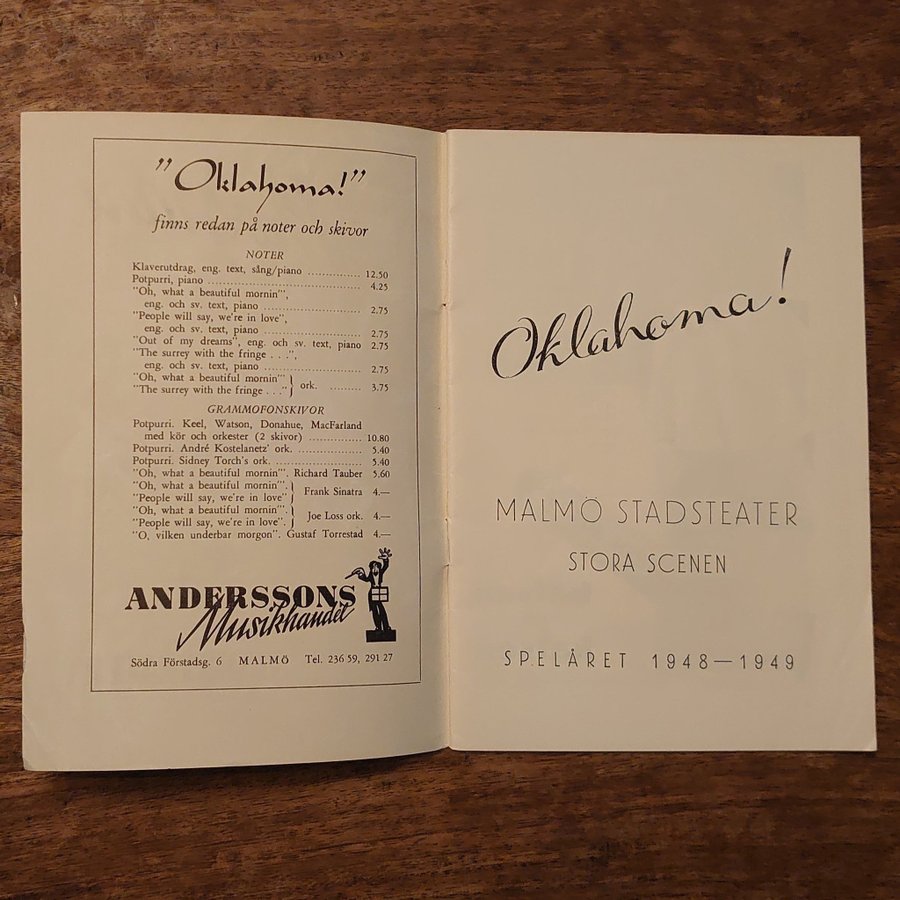 "Oklahoma!"
finns redan på noter och skivor
NOTER
Klaverutdrag, eng. text, sång/piano .............. 12.50
Potpurri, piano ........................................ 4.25
"Oh, what a beautiful mornin'",
eng. och sv. text, piano ...................... 2.75
"People will say, we're in love",
eng. och sv. text, piano ...................... 2.75
"Out of my dreams", eng. och sv. text, piano 2.75
"The surrey with the fringe . . .",
eng. och sv. text, piano ...................... 2.75
"Oh, what a beautiful mornin'"
"The surrey with the fringe . . ." } ork. ........ 3.75
GRAMMOFONSKIVOR
Potpurri. Keel, Watson, Donahue, MacFarland
med kör och orkester (2 skivor) ............. 10.80
Potpurri. André Kostelanetz' ork. ............... 5.40
Potpurri. Sidney Torch's ork. .................... 5.40
"Oh, what a beautiful mornin'". Richard Tauber 5.60
"Oh, what a beautiful mornin'"
"People will say, we're in love" } Frank Sinatra 4.—
"Oh, what a beautiful mornin'".
"People will say, we're in love". } Joe Loss ork. 4.—
"O, vilken underbar morgon". Gustaf Torrestad 4.—
ANDERSSONS
Musikhandel
Södra Förstadsg. 6 MALMÖ Tel. 236 59, 291 27
Oklahoma!
MALMÖ STADSTEATER
STORA SCENEN
SPELÅRET 1948—1949